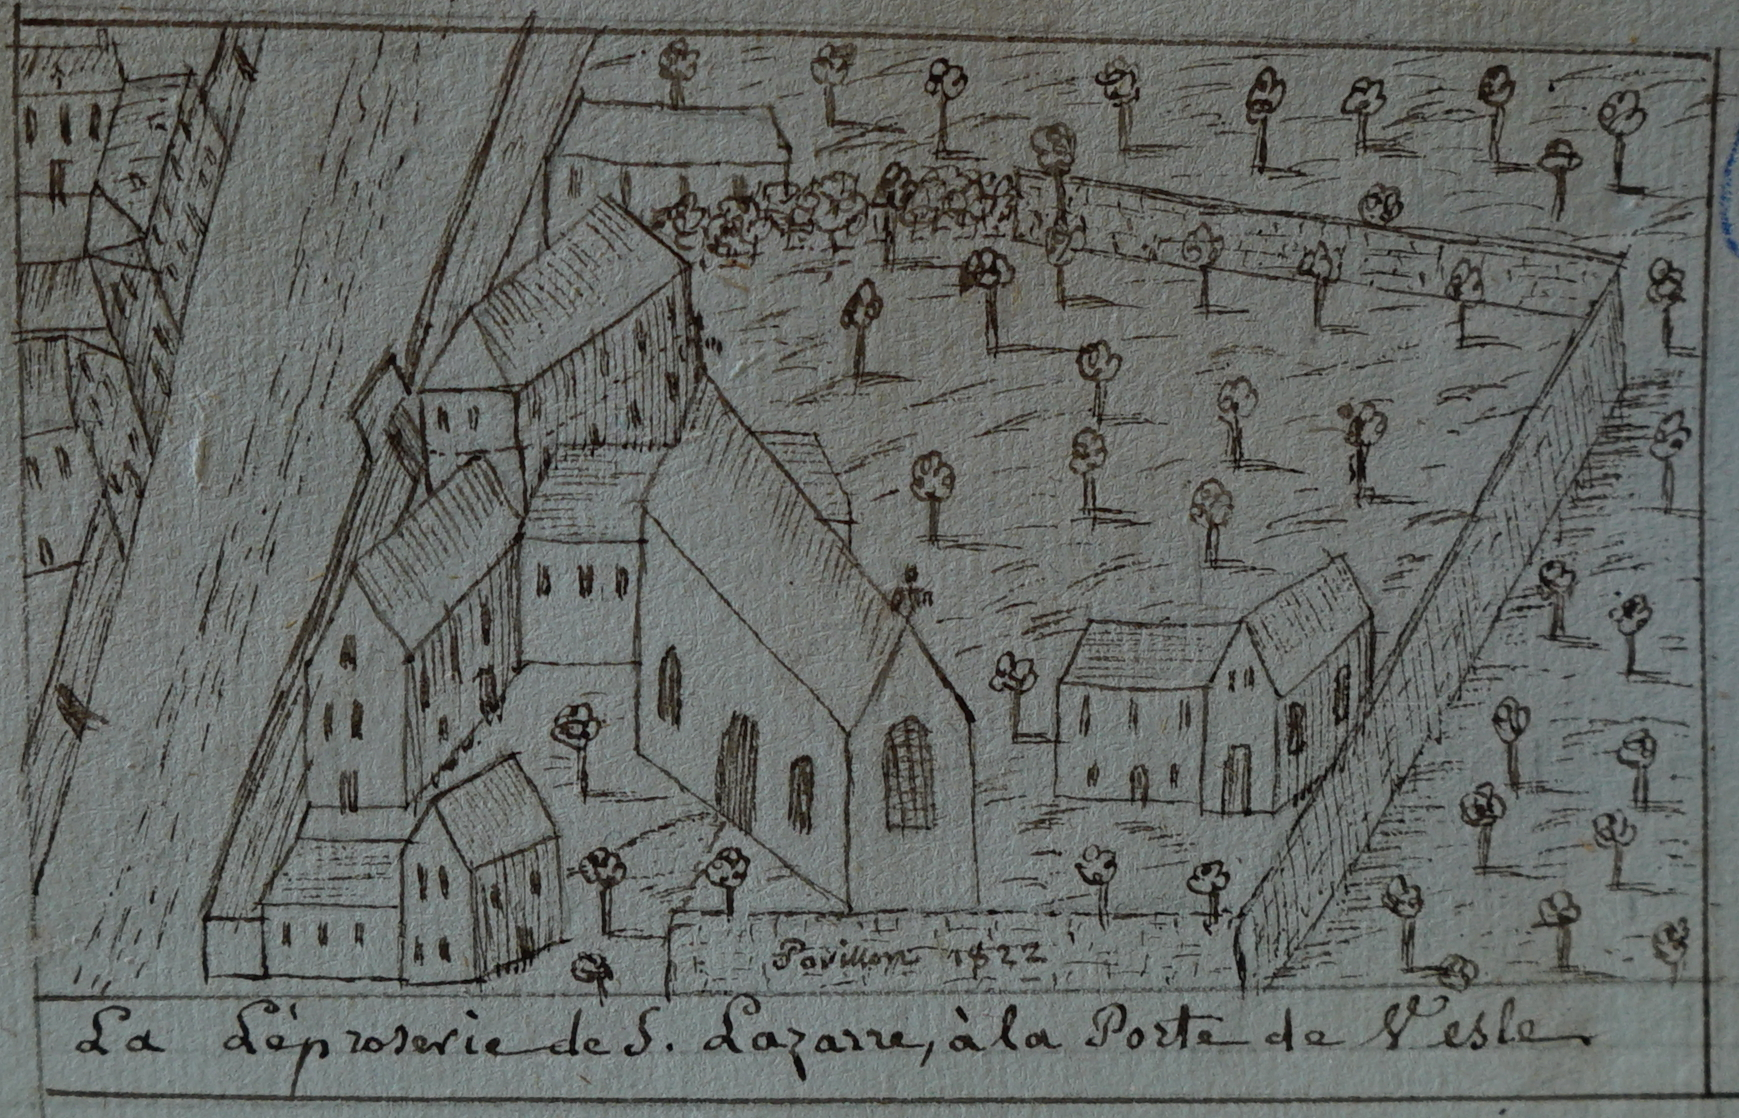 Povillon 1822
La Léproserie de S. Lazarre, à la Porte de Vesle